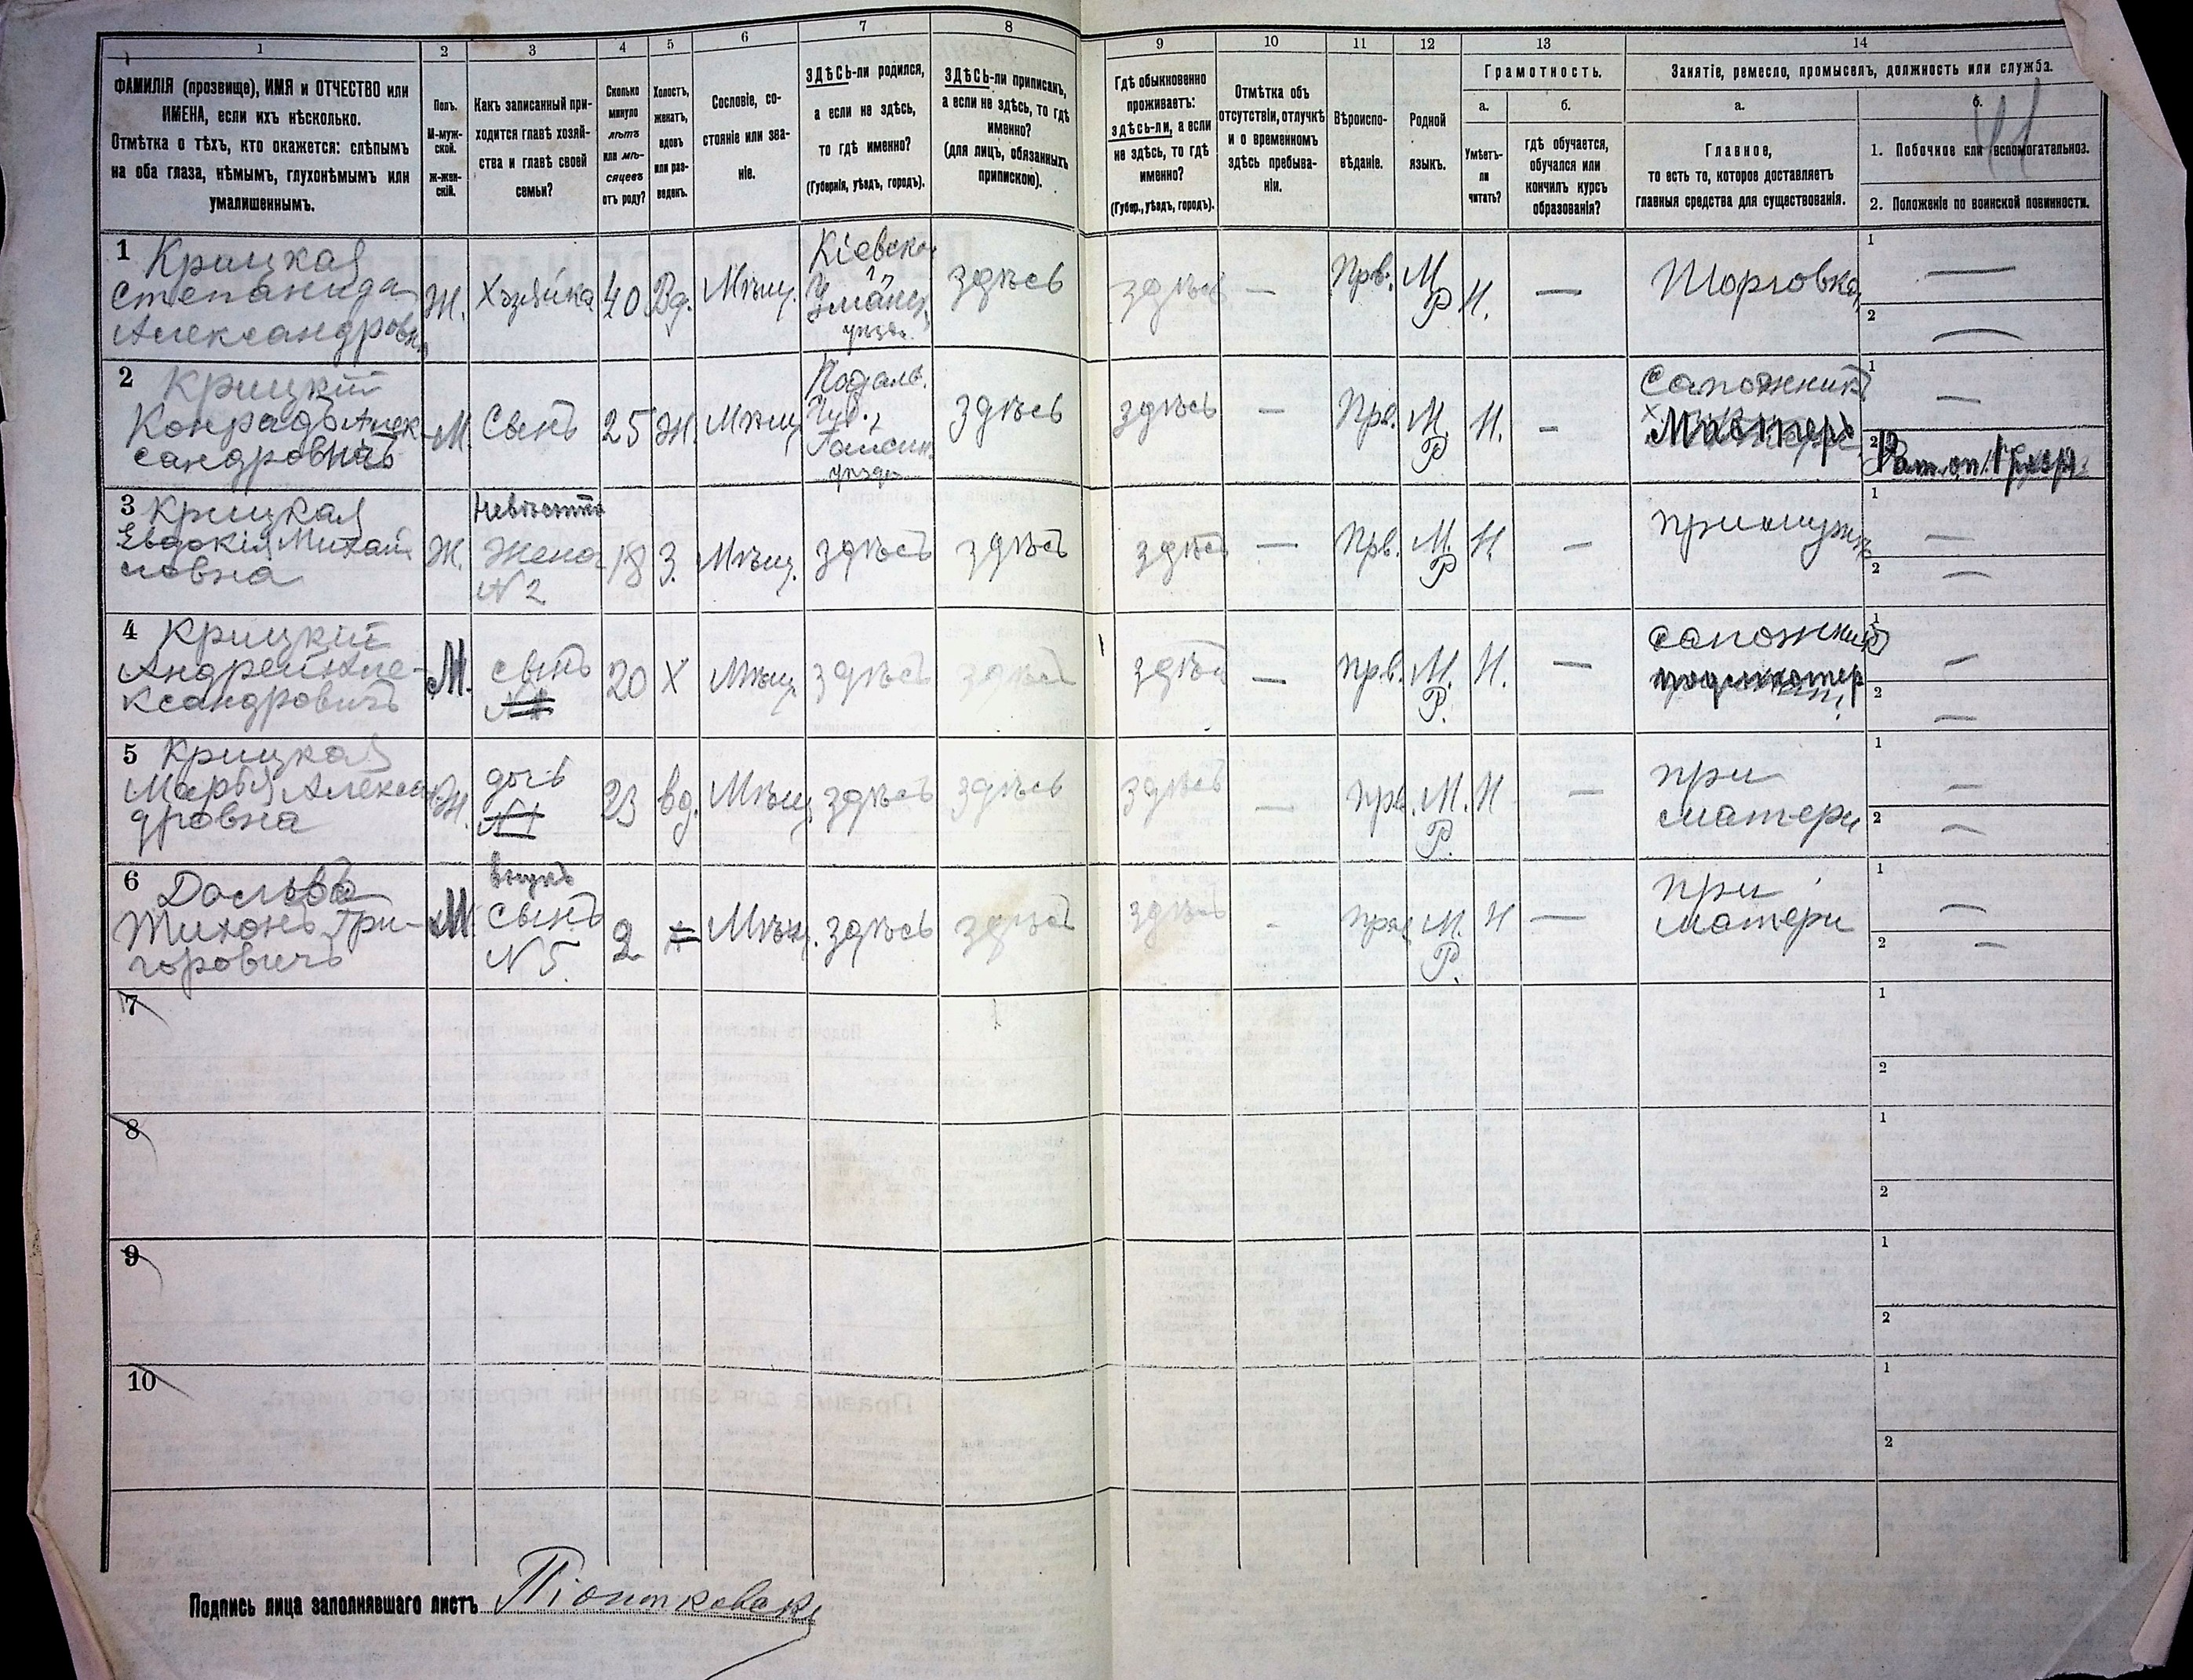 1 2 3 4 5 6 7 8 9 10 11 12 13 14
ФАМИЛІЯ (прозвище), ИМЯ и ОТЧЕСТВО или
ИМЕНА, если ихъ нѣсколько.
Отмѣтка о тѣхъ, кто окажется: слѣпымъ
на оба глаза, нѣмымъ, глухонѣмымъ или
умалишеннымъ.
Полъ.
М-муж-
ской.
Ж-жен-
скій.
Какъ записанный при-
ходится главѣ хозяй-
ства и главѣ своей
семьи?
Сколько
минуло
лѣтъ
или мѣ-
сяцевъ
отъ роду?
Холостъ,
женатъ,
вдовъ
или раз-
веденъ.
Сословіе, со-
стояніе или зва-
ніе.
ЗДѢСЬ-ли родился,
а если не здѣсь,
то гдѣ именно?
(Губернія, уѣздъ, городъ).
ЗДѢСЬ-ли приписанъ,
а если не здѣсь, то гдѣ
именно?
(для лицъ, обязанныхъ
припискою).
Гдѣ обыкновенно
проживаетъ:
здѣсь-ли, а если
не здѣсь, то гдѣ
именно?
(Губер., уѣздъ, городъ).
Отмѣтка объ
отсутствіи, отлучкѣ
и о временномъ
здѣсь пребыва-
ніи.
Вѣроиспо-
вѣданіе.
Родной
языкъ.
Грамотность.
а.
Умѣетъ-
ли
читать?
б.
гдѣ обучается,
обучался или
кончилъ курсъ
образованія?
Занятіе, ремесло, промыселъ, должность или служба.
а.
Главное,
то есть то, которое доставляетъ
главныя средства для существованія.
б.
1. Побочное или вспомогательное.
2. Положеніе по воинской повинности.
1 Крицкая
Степанида
Александровна
Ж.
Хозяйка
40
Вд.
Мѣщ.
Кіевск.
г.,
Уманск.
уѣзд.
здѣсь
здѣсь
—
Прв.
М
Р
Н.
—
Торговка
1 —
2 —
2 Крицкій
Конрадъ Алек
сандровичъ
М.
Сынъ
25
Ж.
Мѣщ
Подоль.
Губ.,
Гайсин.
уѣзда
здѣсь
здѣсь
—
Пр.
М
Р
Н.
—
Сапожникъ
1 —
2
3 Крицкая
Евдокія Михай
ловна
Ж.
Невѣстка
Жена
N 2
18
З.
Мѣщ.
здѣсь
здѣсь
здѣсь
—
Прв.
М.
Р
Н
—
при мужѣ
1 —
2 —
4 Крицкій
Андрей Але-
ксандровичъ
М.
сынъ
20
Х
Мѣщ
здѣсь
здѣсь
здѣсь
—
прв.
М.
Р.
Н.
—
сапожникъ
1 —
2 —
5 Крицкая
Марья Алекса
дровна
Ж.
дочь
23
вд.
Мѣщ
здѣсь
здѣсь
здѣсь
—
прв.
М.
Р.
Н
—
при
матери
1 —
2 —
6
Тихонъ Гри-
горовичъ
М
внукъ
сынъ
N 5.
2
Мѣщ.
здѣсь
здѣсь
здѣсь
-
прв
М.
Р.
Н
—
при
матери
1 —
2 —
7
1
2
8
1
2
9
1
2
10
1
2
Подпись лица заполнявшаго листъ